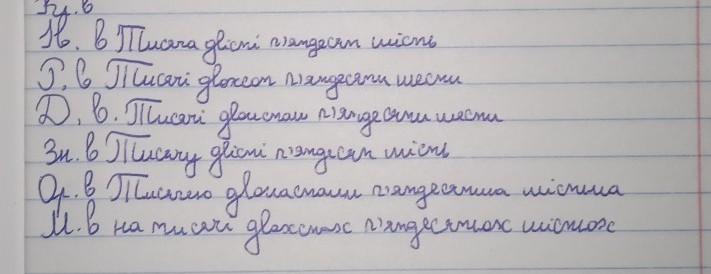 Н. в Тисяча двісті п'ятдесят шість
Р. в Тисячі двохсот п'ятдесяти шести
Д. в. Тисячі двомстам п'ятдесяти шести
Зн. в Тисячу двісті п'ятдесят шість
Ор. в Тисячею двомастами п'ятдесятьма шістьма
М. в на тисячі двохстах п'ятдесятьох шістьох